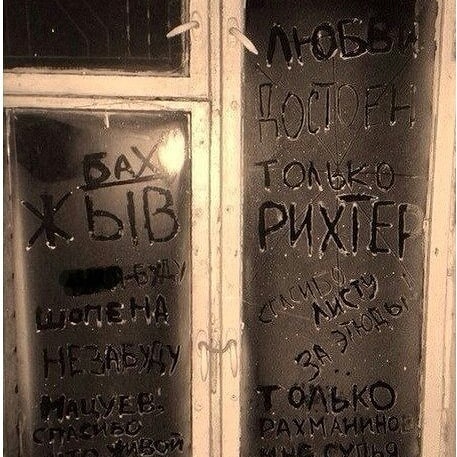 БАХ
ЖЫВ
БУДУ
ШОПЕНА
НЕЗАБУДУ
МАЦУЕВ,
СПАСИБО
ЧТО ЖИВОЙ
ЛЮБВИ
ДОСТОЕН
ТОЛЬКО
РИХТЕР
СПАСИБО
ЛИСТУ
ЗА ЭТЮДЫ!
ТОЛЬКО
РАХМАНИНОВ
МНЕ СУДЬЯ